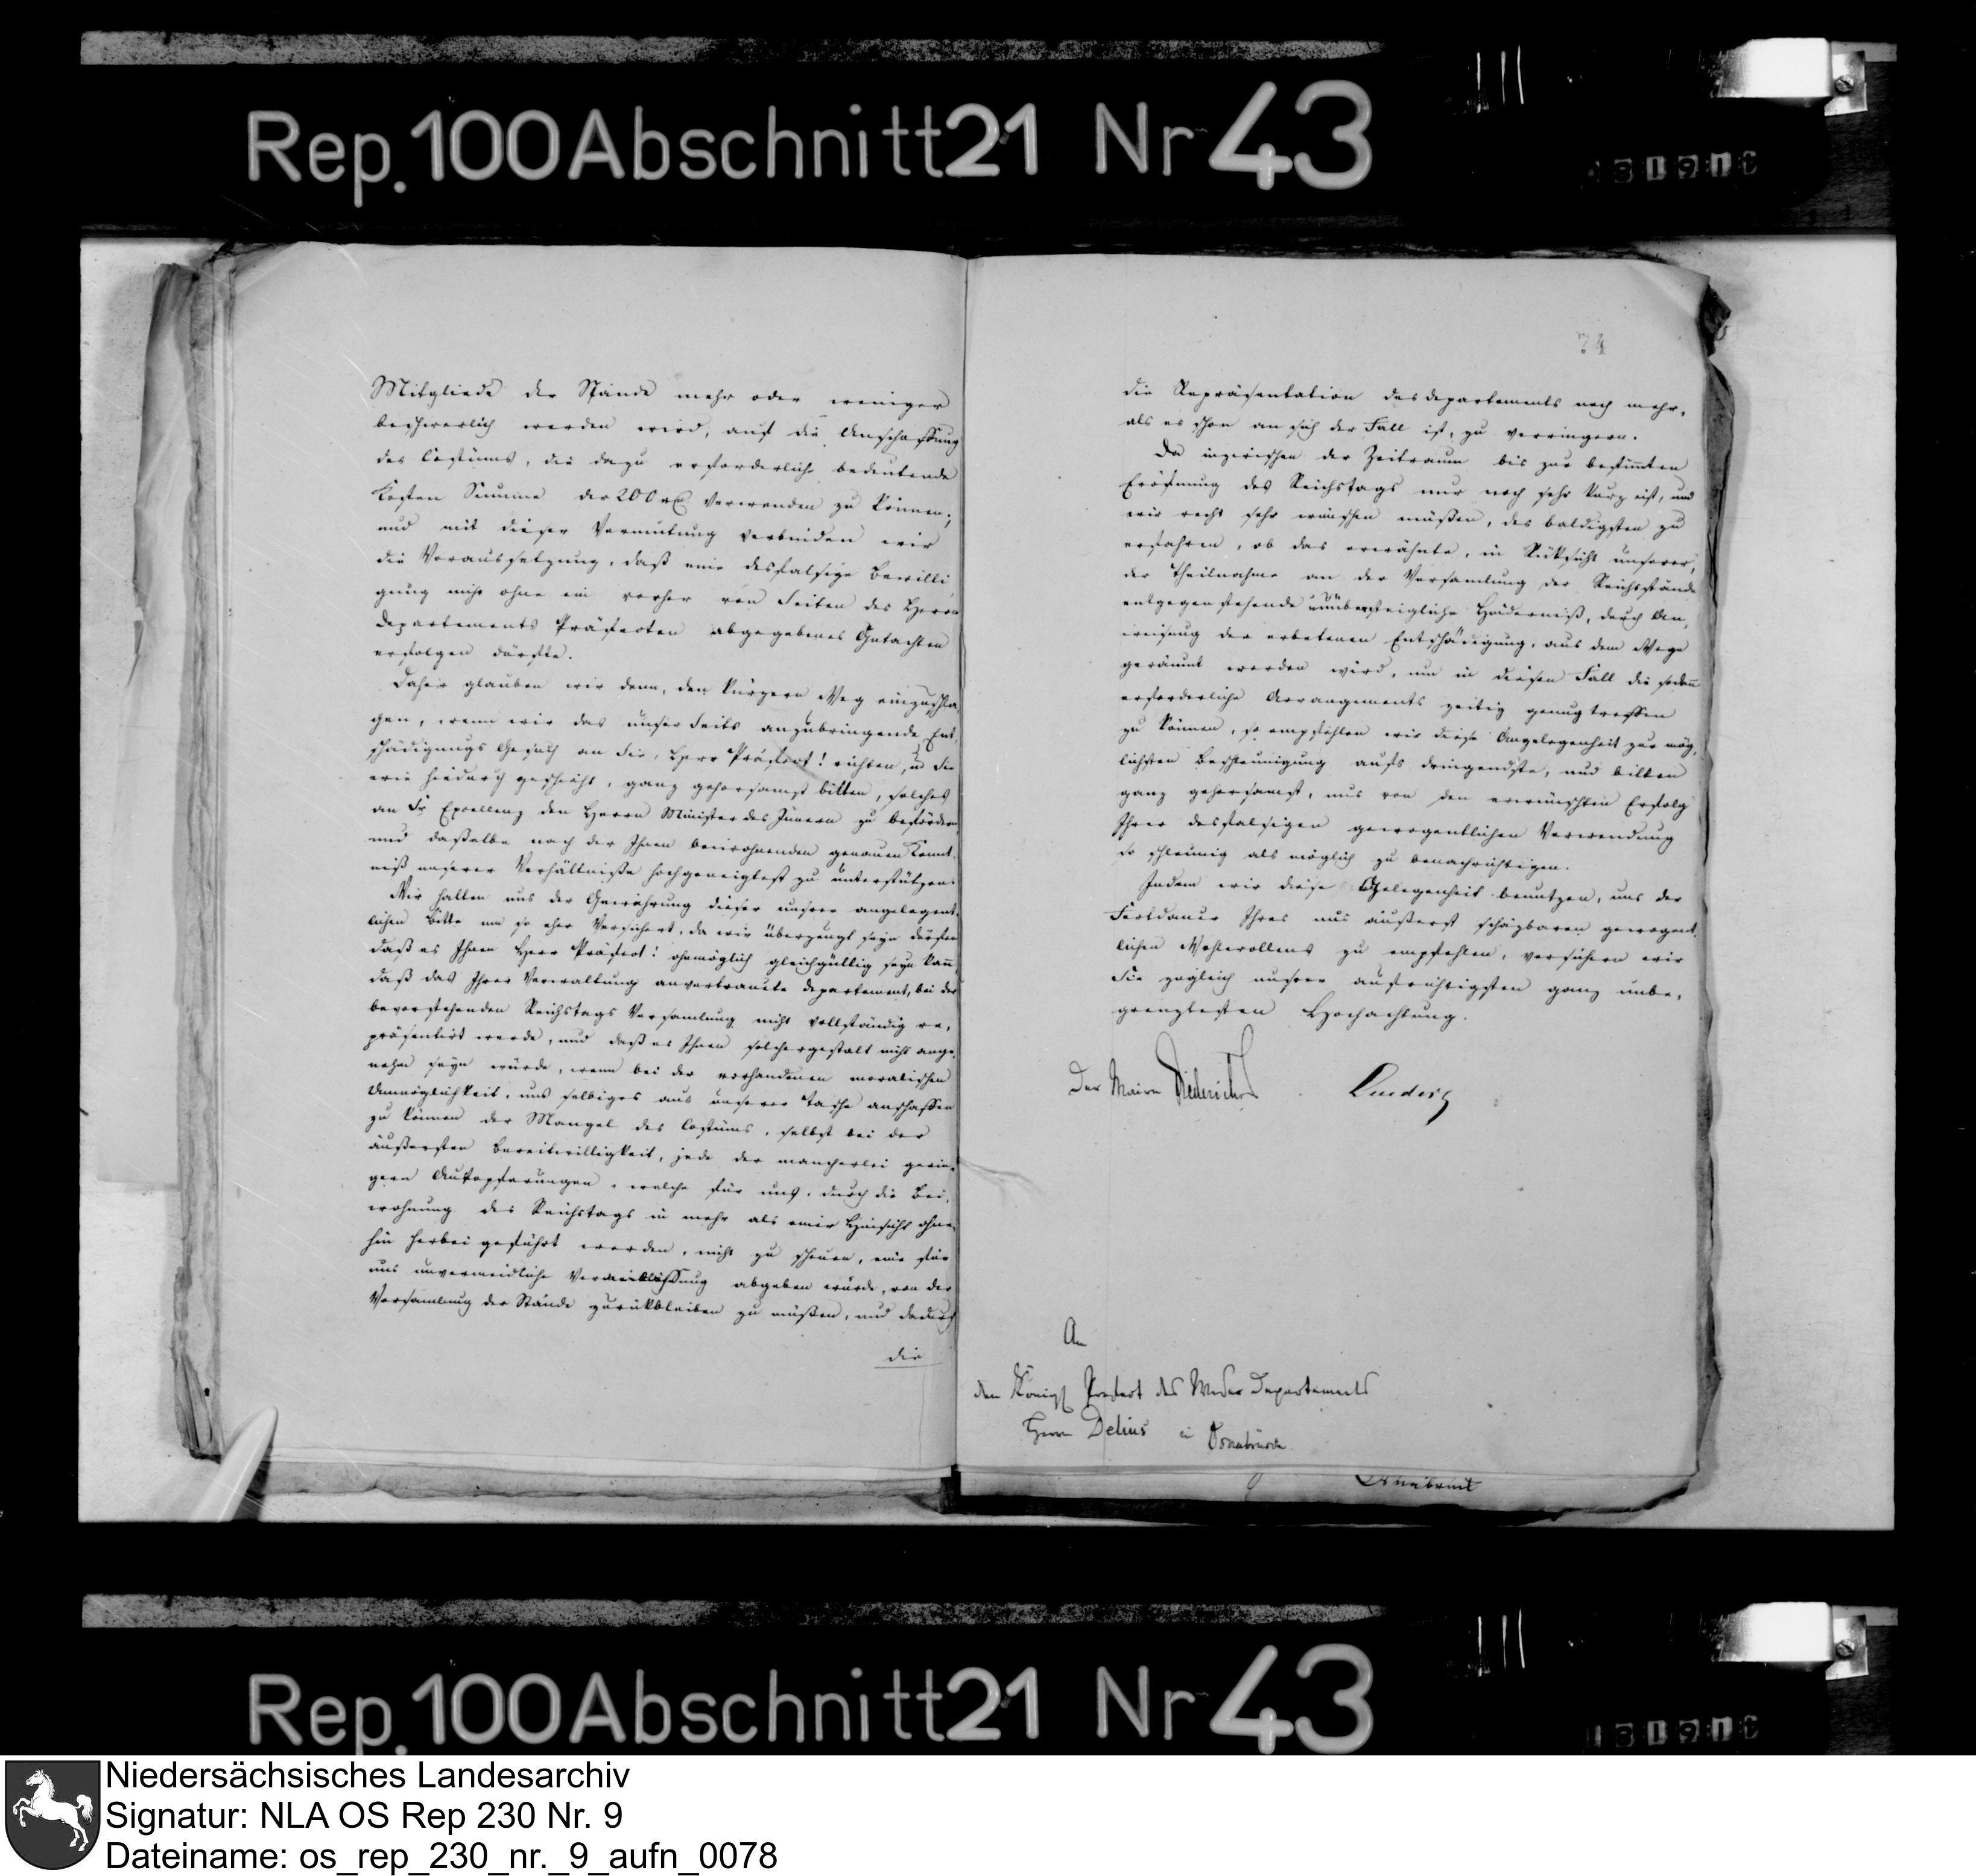 Rep. 100 Abschnitt 21 Nr 43
Mitgliede der Stände mehr oder weniger
beschwerlich werden wird, auf die Anschaffung
des Costüms, die dazu erforderliche bedeutende
Kosten Summe der 200 verwenden zu können;
und mit dieser Vermutung verbinden wir
die Voraussetzung, daß eine desfalsige Bewilli
gung nicht ohne ein vorher von Seiten des Herrn
Departements Präfecten abgegebenes Gutachten
erfolgen dürfte.
Daher glauben wir denn, den kürzern Weg einzuschla,
gen, wenn wir das unser Seits anzubringende Ent,
schädigungs Gesuch an Sie, Herr Präfect! richten, u Sie
wie hiedurch geschieht, ganz gehorsamst bitten, solches
an Se Excellenz den Herrn Minister des Innern zu befördern
und daßelbe nach der Ihnen beiwohnenden genauen Kennt,
niß unserer Verhältniße hochgeneigtest zu unterstützen.
Wir halten uns der Gewährung dieser unsrer angelegent,
lichen Bitte um so eher versichert, da wir überzeugt seyn dürfen
daß es Ihnen Herr Präfect! ohnmöglich gleichgültig seyn kann,
daß das Ihrer Verwaltung anvertrauete Departement, bei der
bevorstehenden Reichstags Versamlung nicht vollständig re,
präsentirt werde, und daß es Ihnen solchergestalt nicht ange,
nehm seyn würde, wenn bei der vorhandenen moralischen
Unmöglichkeit, uns selbiges aus unserer Tasche anschaffen
zu können der Mangel des Costüms, selbst bei der
äußersten Bereitwilligkeit, jede der mancherlei gerin,
gern Aufopferungen, welche für uns, durch die Bei,
wohnung des Reichstags in mehr als einer Hinsicht ohne,
hin herbei geführt werden, nicht zu scheuen, eine für
uns unvermeidliche Veranlassung abgeben würde, von der
Versamlung der Stände zurükbleiben zu müßen, und dadurch
die
74
die Repräsentation des departements noch mehr,
als es schon an sich der Fall ist, zu verringern.
Da inzwischen der Zeitraum bis zur bestimten
Eröfnung des Reichstags nur noch sehr kurz ist, und
wir recht sehr wünschen müßen, des baldigsten zu
erfahren, ob das erwähnte, in Rüksicht unserer,
der Theilnahme an der Versamlung der Reichsstände
entgegen stehende unübersteigliche Hinderniß, durch An,
weisung der erbetenen Entschädigung, aus dem Wege
geräumt werden wird, um in diesen Fall die sodann
erforderliche Arrangements zeitig genug treffen
zu können, so empfehlen wir diese Angelegenheit zur mög,
lichsten Beschleunigung aufs dringendste, und bitten
ganz gehorsamst, uns von den erwünschten Erfolg
Ihrer desfalsigen gewogentlichen Verwendung
so schleunig als möglich zu benachrichtigen.
Indem wir diese Gelegenheit benutzen, uns der
Fortdauer Ihres uns äußerst schäzbaren gewogent,
lichen Wohlwollens zu empfehlen, versichern wir
Sie zugleich unsrer aufrichtigsten ganz unbe,
grenztesten Hochachtung.
Der Maire Diederichs Ludwig
An
den Königl Prefect des Weser Departements
Herrn Delius in Osnabrück
Osnabrück
Rep. 100 Abschnitt 21 Nr 43
Niedersächsisches Landesarchiv
Signatur: NLA OS Rep 230 Nr. 9
Dateiname: os_rep_230_nr._9_aufn_0078